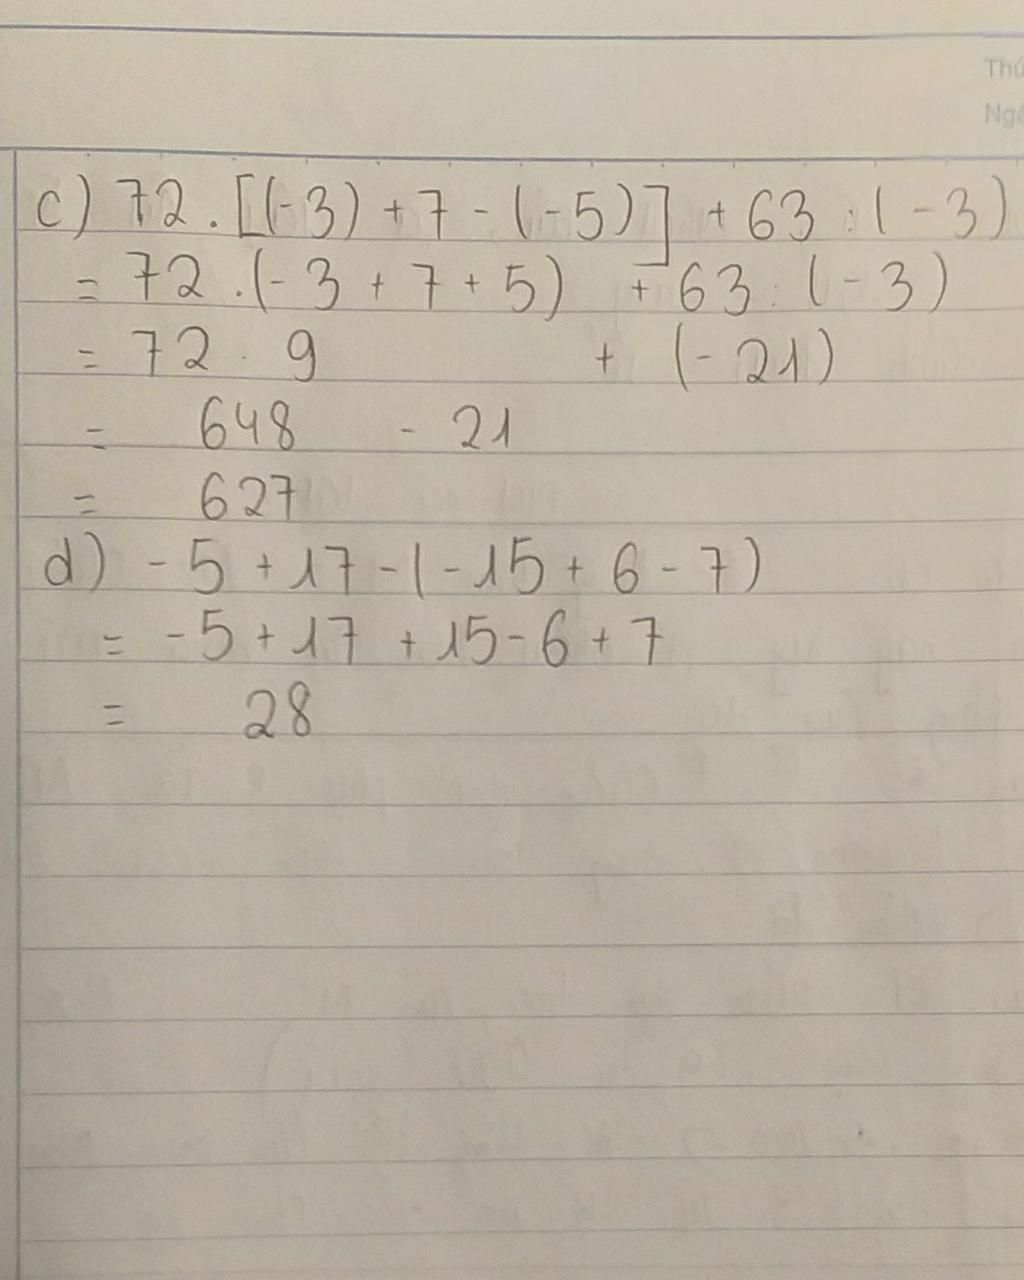 Thứ
Ngà
c) 72 . [(-3) + 7 - (-5)] + 63 : (-3)
= 72 . (-3 + 7 + 5) + 63 : (-3)
= 72 . 9 + (-21)
= 648 - 21
= 627
d) -5 + 17 - (-15 + 6 - 7)
= -5 + 17 + 15 - 6 + 7
= 28